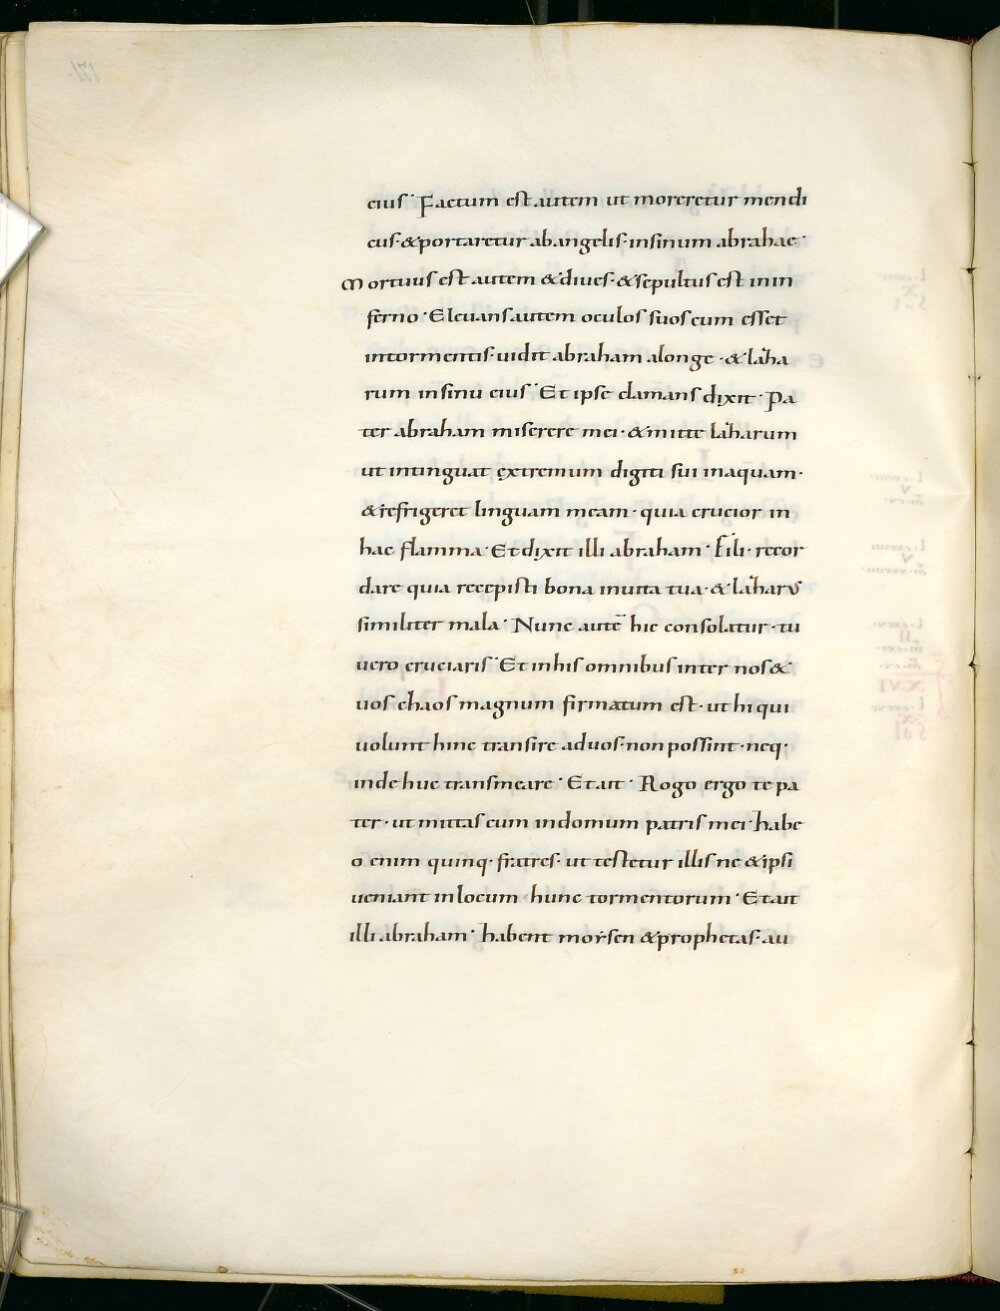 eius· Factum est autem ut moreretur mendi
cus· &portaretur abangelis· insinum abrahae·
Mortuus est autem &diues· &sepultus est inin
ferno· Eleuans autem oculos suos cum esset
intormentis· uidit abraham alonge· &laha
rum insinu eius· Et ipse clamans dixit· Pa
ter abraham miserere mei· &mitte laharum
ut intinguat extremum digiti sui inaquam·
&refrigeret linguam meam· quia crucior in
hac flamma· Et dixit illi abraham· Fili· recor
dare quia recepisti bona inuita tua· &laharū
similiter mala· Nunc autē hic consolatur· tu
uero cruciaris· Et inhis omnibus inter nos &
uos chaos magnum firmatum est· ut hi qui
uolunt hinc transire aduos· non possint· neq·
inde huc transmeare· Et ait· Rogo ergo te pa
ter· ut mittas eum indomum patris mei· habe
o enim quinq· fratres· ut testetur illis ne &ipsi
ueniant inlocum hunc tormentorum· Et ait
illi abraham· habent moysen &prophetas· au